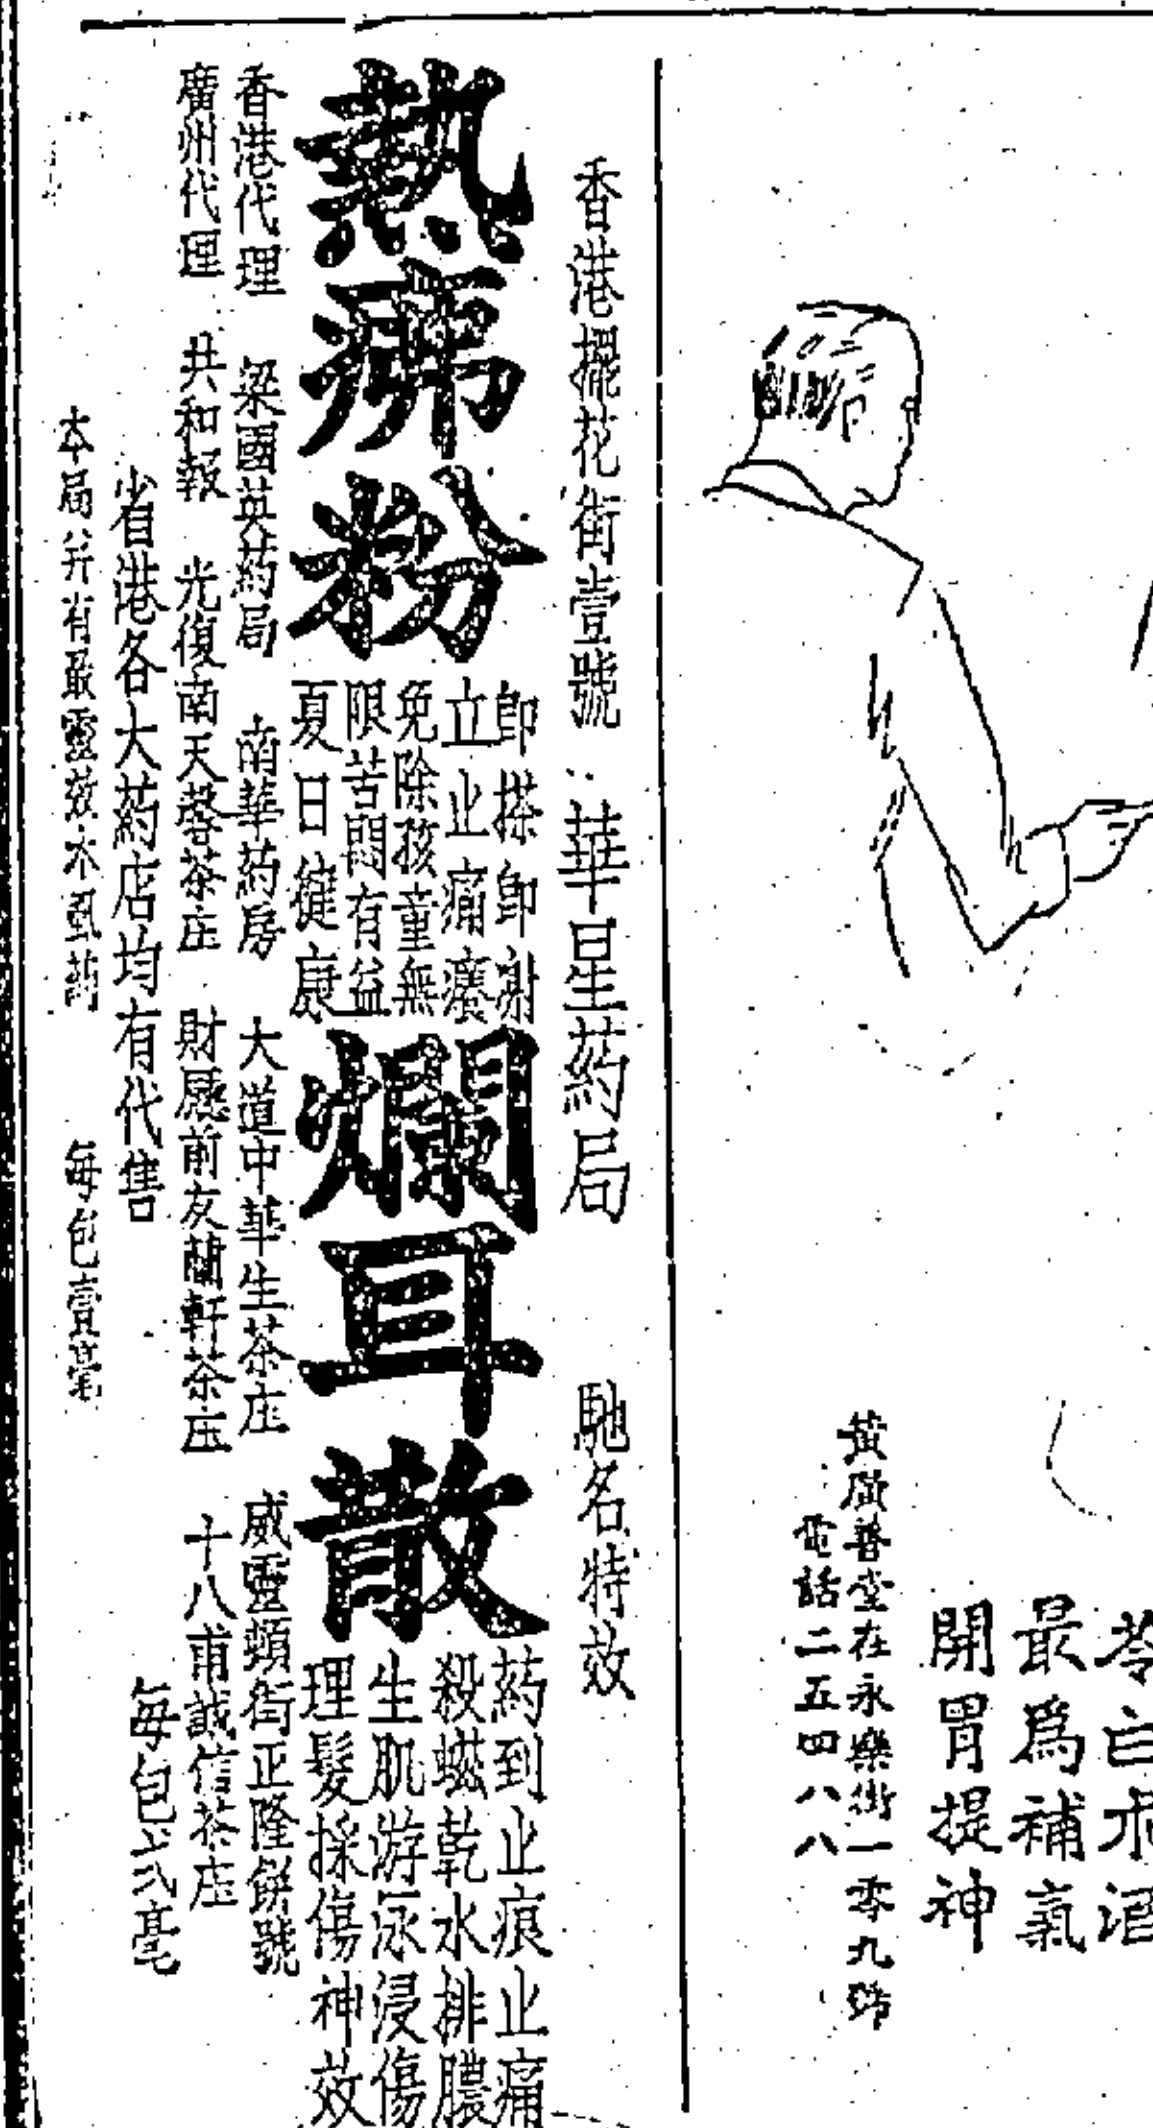 苓白朮酒
最爲補氣
開胃提神
黃廣善堂在永樂街一零九號
電話二五四八八
香港擺花街壹號 華星葯局 馳名特效
熱痱粉
即搽即謝
立止痛癢
免除孩童無
限苦悶有益
夏日健康
爛耳散
葯到止痕止痛
殺蟻乾水排膿
生肌游泳浸傷
理髮採傷神效
香港代理 梁國英葯局 南華葯房 大道中華生茶庄 威靈頓街正隆餅號
廣州代理 共和報 光復南天馨茶庄 財廳前友蘭軒茶庄 十八甫誠信茶庄
省港各大葯店均有代售 每包弍毫
本局并有最靈效木虱葯 每包壹毫